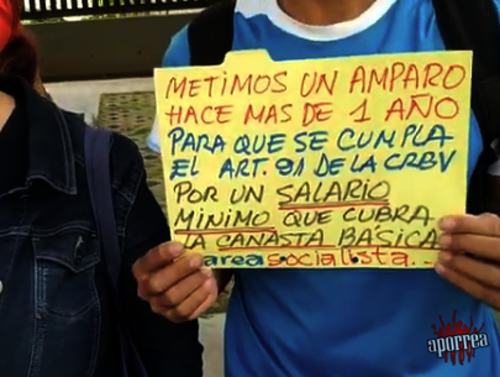 METIMOS UN AMPARO
HACE MAS DE 1 AÑO
PARA QUE SE CUMPLA
EL ART. 91 DE LA CRBV
POR UN SALARIO
MINIMO QUE CUBRA
LA CANASTA BÁSICA
area socialista...
aporrea